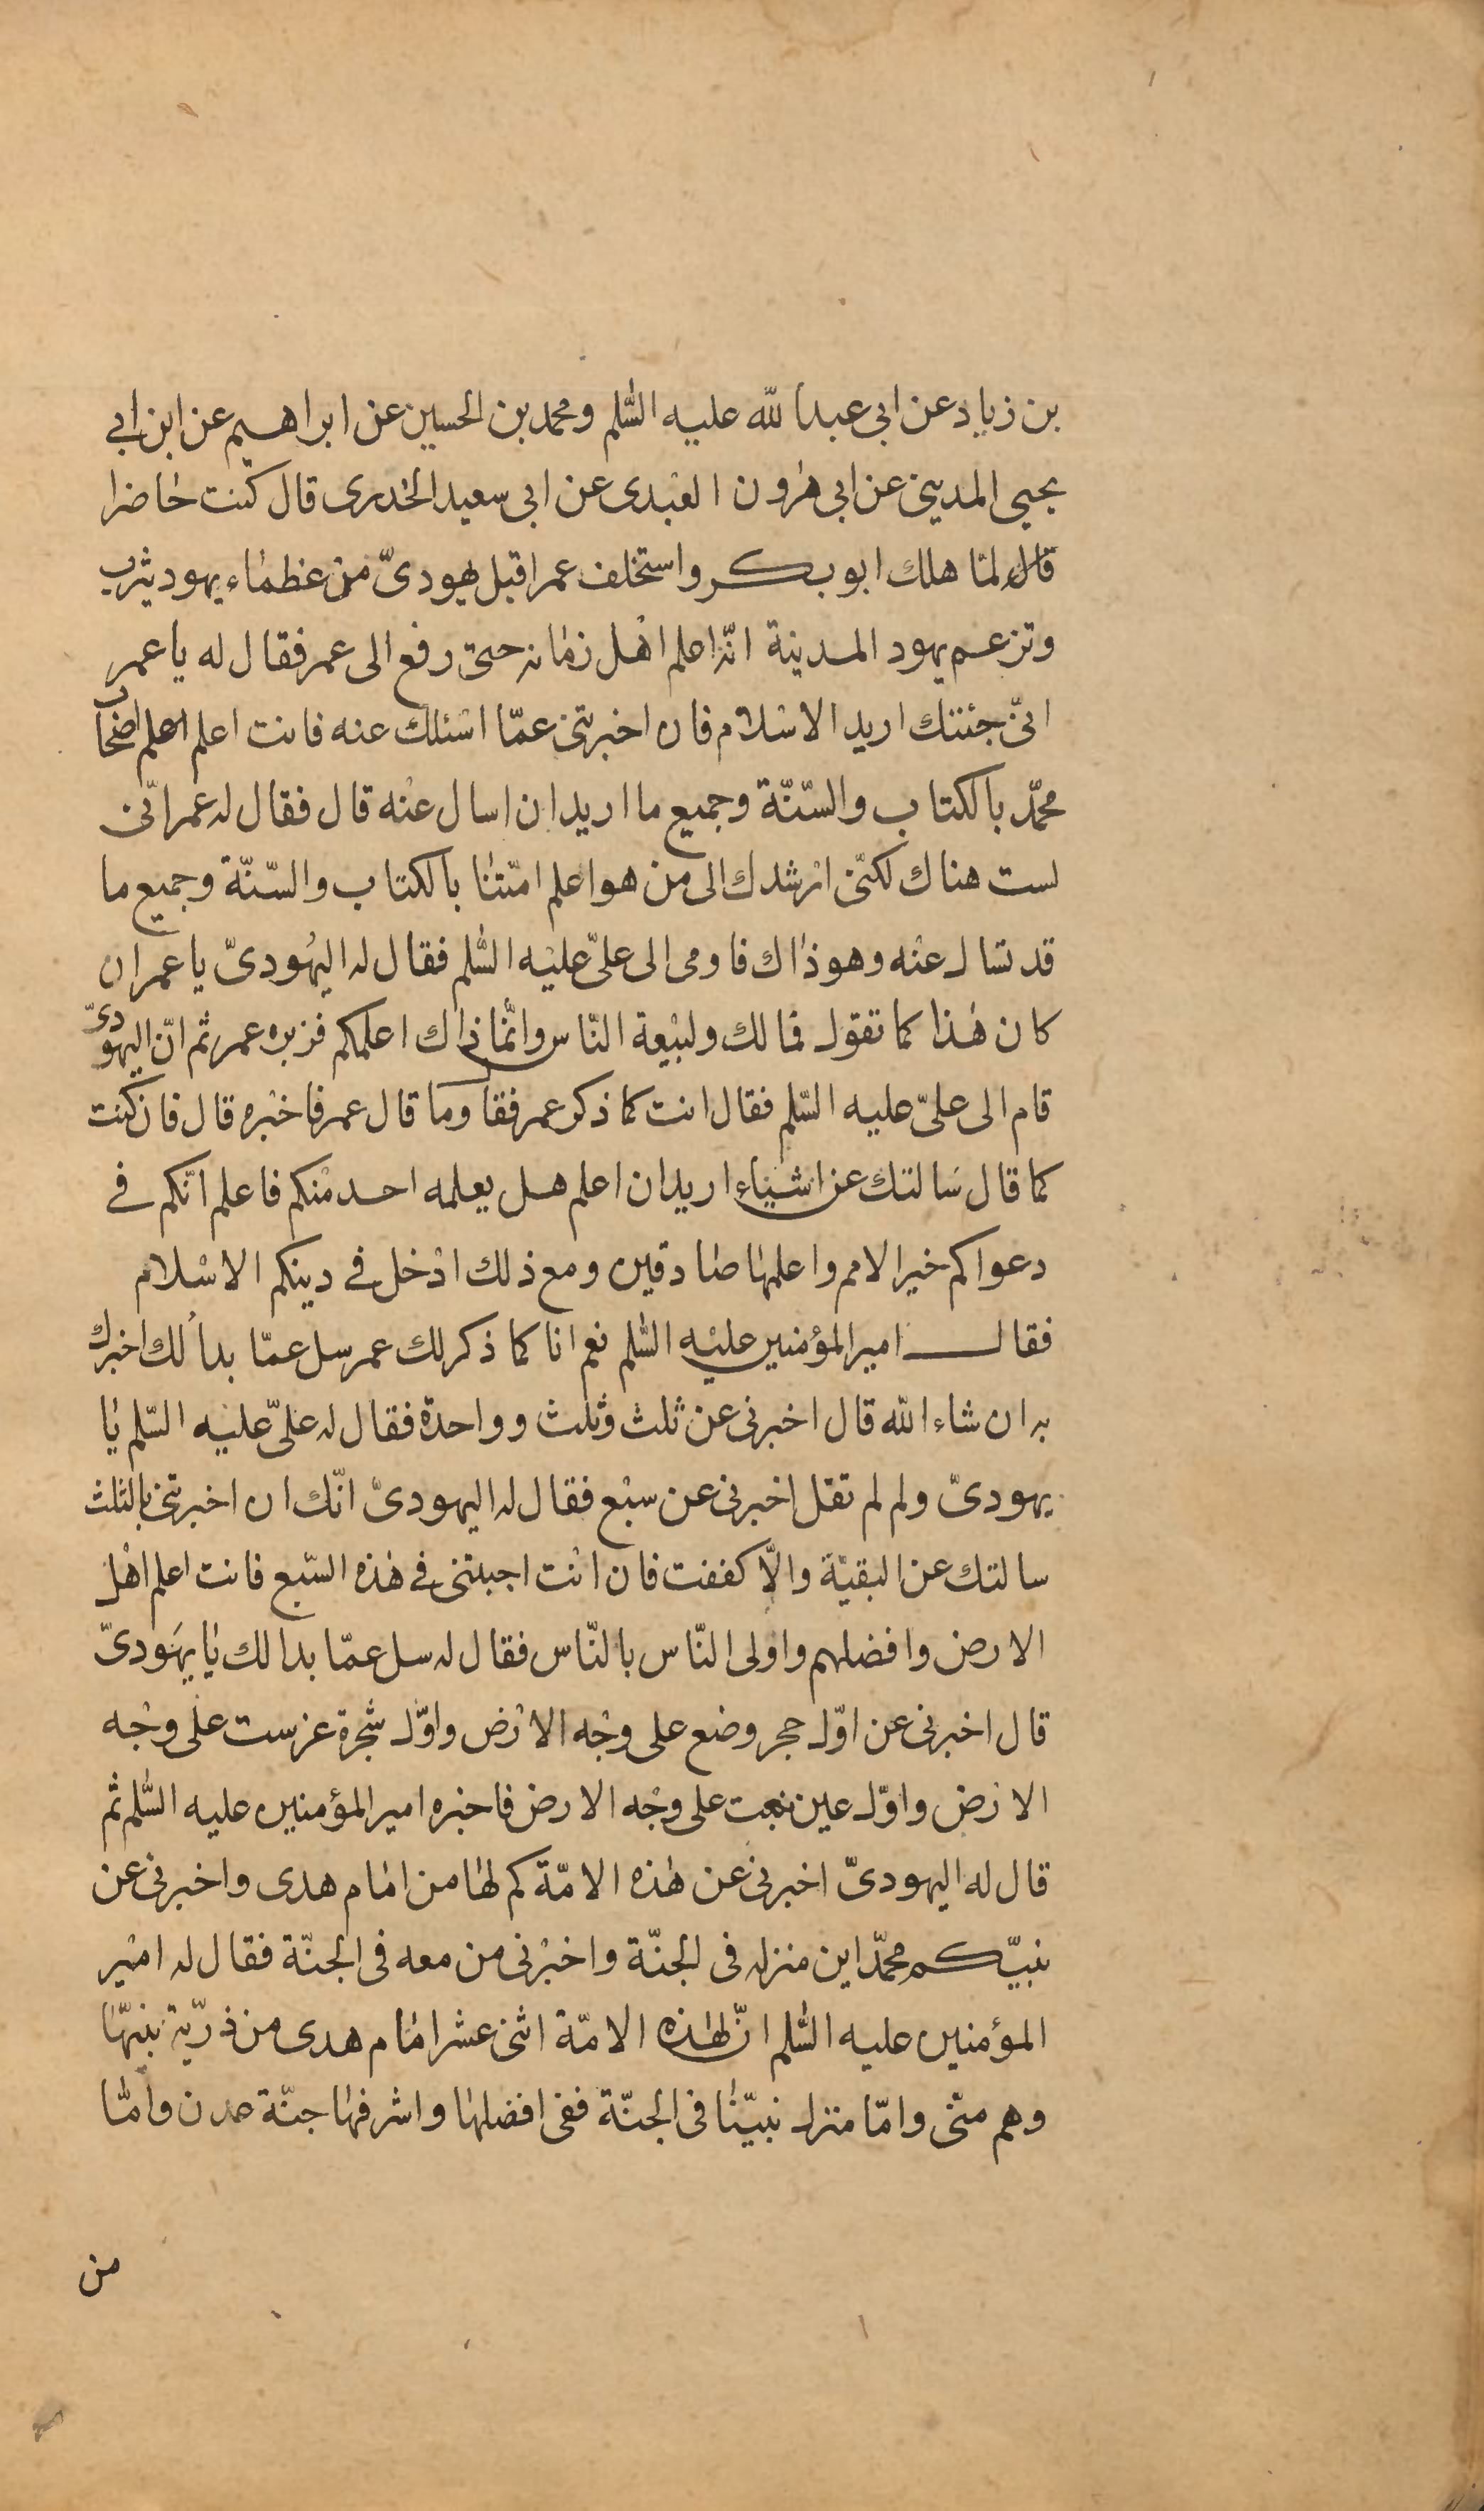 بن زياد عن ابى عبدا لله عليه السّلم ومحمد بن الحسين عن ابراهيم عن ابن ابى
يحيى المدينى عن ابى هرون العبدى عن ابى سعيد الخدرى قال كنت حاضرا
قال لمّا هلك ابو بكر واستخلف عمر اقبل يهودىّ من عظماء يهود يثرب
وتزعم يهود المدينة انّه اعلم اهل زمانه حتى رفع الى عمر فقال له يا عمر
انّى جئتك اريد الاسلام فان اخبرتنى عمّا اسئلك عنه فانت اعلم اعلم اصحاب
محمّد بالكتاب والسّنّة وجميع ما اريد ان اسال عنه قال فقال له عمر انّى
لست هناك لكنّى ارشدك الى من هو اعلم امّتنا بالكتاب والسّنّة وجميع ما
قد تسال عنه وهو ذاك فاومى الى علىّ عليه السّلم فقال له اليهودىّ يا عمر ان
كان هذا كما تقول فما لك ولبيعة النّاس وانّما ذاك اعلمكم فزبره عمر ثم انّ اليهودىّ
قام الى علىّ عليه السّلم فقال انت كما ذكر عمر فقا وما قال عمر فاخبره قال فان كنت
كما قال سالتك عن اشياء اريد ان اعلم هل يعلمه احد منكم فاعلم انّكم فى
دعواكم خير الامم واعلمها صادقين ومع ذلك ادخل فى دينكم الاسلام
فقال امير المؤمنين عليه السّلم نعم انا كما ذكر لك عمر سل عمّا بدأ لك اخبرك
به ان شاء الله قال اخبرنى عن ثلث وثلث وواحدة فقال له علىّ عليه السّلم يا
يهودىّ ولم لم تقل اخبرنى عن سبع فقال له اليهودىّ انّك ان اخبرتنى بالثلث
سالتك عن البقيّة والّا كففت فان انت اجبتنى فى هذه السّبع فانت اعلم اهل
الارض وافضلهم واولى النّاس بالنّاس فقال له سل عمّا بدا لك يا يهودىّ
قال اخبرنى عن اوّل حجر وضع على وجه الارض واوّل شجرة غرست على وجه
الارض واوّل عين نبعت على وجه الارض فاخبره امير المؤمنين عليه السّلم ثم
قال له اليهودىّ اخبرنى عن هذه الامّة كم لها من امام هدى واخبرنى عن
نبيّكم محمّد اين منزله فى الجنّة واخبرنى من معه فى الجنّة فقال له امير
المؤمنين عليه السّلم انّ لهذه الامّة اثنى عشر امام هدى من ذرّية نبيّها
وهم منّى وامّا منزل نبيّنا فى الجنّة ففى افضلها واشرفها جنّة عدن وامّا
من